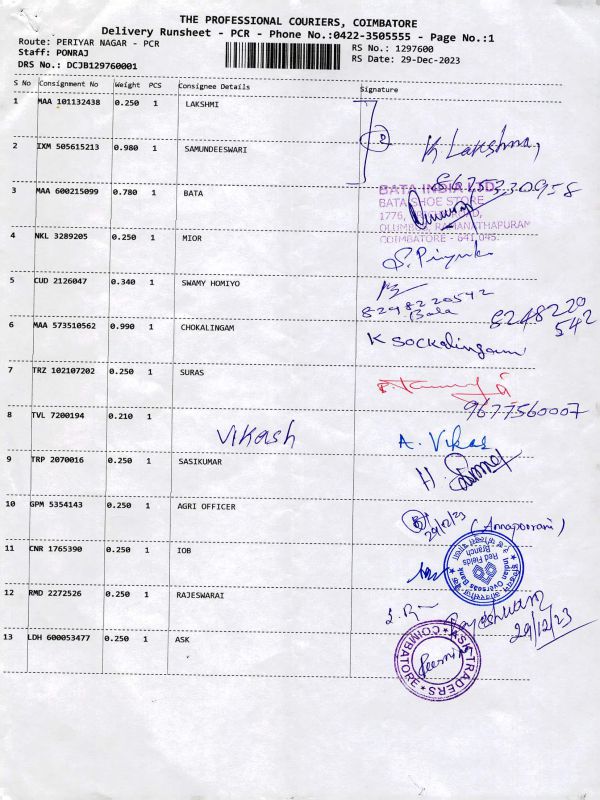 THE PROFESSIONAL COURIERS, COIMBATORE
Delivery Runsheet - PCR - Phone No.:0422-3505555 - Page No.:1
Route: PERIYAR NAGAR - PCR
RS No.: 1297600
Staff: PONRAJ
RS Date: 29-Dec-2023
DRS No.: DCJB129760001
S No Consignment No Weight PCS Consignee Details Signature
1 MAA 101132438 0.250 1 LAKSHMI
2 IXM 505615213 0.980 1 SAMUNDEESWARI
K Lakshmi
8675330958
3 MAA 600215099 0.780 1 BATA
BATA INDIA LTD.
BATA SHOE STORE
1776,
OLUMBUS, RAMANATHAPURAM
COIMBATORE - 641 045.
4 NKL 3289205 0.250 1 MIOR
S. Priyanka
5 CUD 2126047 0.340 1 SWAMY HOMIYO
8298220542
Bala
8248220
542
6 MAA 573510562 0.990 1 CHOKALINGAM
K Sockalingam
7 TRZ 102107202 0.250 1 SURAS
9677560007
8 TVL 7200194 0.210 1
Vikash
A. Vikas
9 TRP 2070016 0.250 1 SASIKUMAR
10 GPM 5354143 0.250 1 AGRI OFFICER
29/12/23 (Annapoorani)
11 CNR 1765390 0.250 1 IOB
Indian Overseas Bank
Red Fields
Branch
12 RMD 2272526 0.250 1 RAJESWARAI
Rajeshwari
29/12/23
13 LDH 600053477 0.250 1 ASK
ASK TRADERS
COIMBATORE